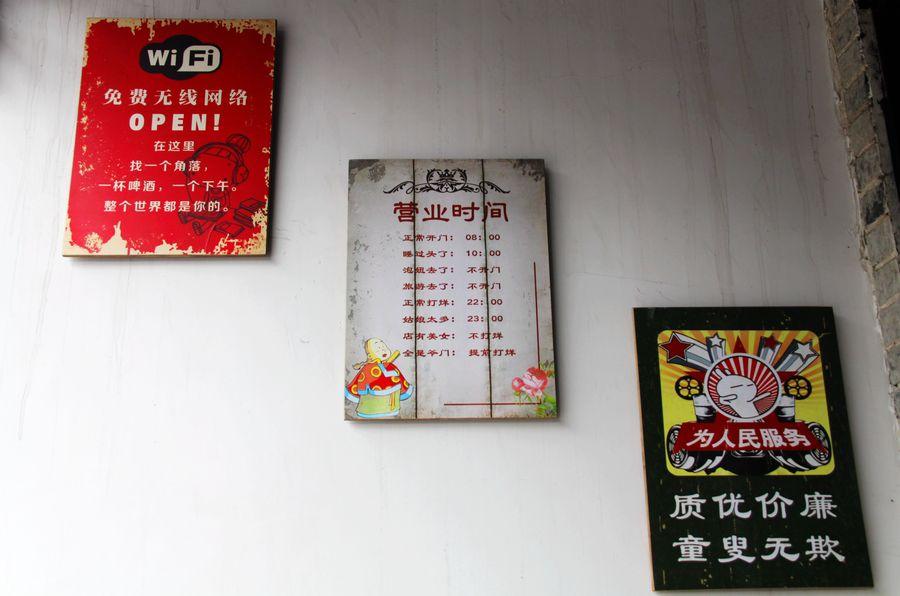 WiFi
免费无线网络
OPEN!
在这里
找一个角落，
一杯啤酒，一个下午。
整个世界都是你的。
营业时间
正常开门： 08:00
睡过头了： 10:00
泡妞去了： 不开门
旅游去了： 不开门
正常打烊： 22:00
姑娘太多： 23:00
店有美女： 不打烊
全是爷门： 提前打烊
为人民服务
质优价廉
童叟无欺